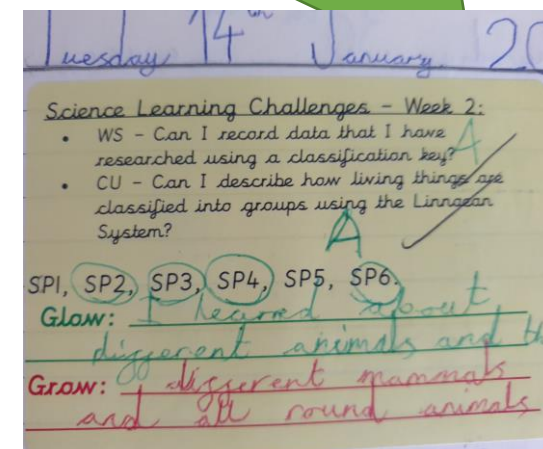 Tuesday 14th January 20
Science Learning Challenges – Week 2:
• WS – Can I record data that I have
researched using a classification key? A
• CU – Can I describe how living things are
classified into groups using the Linnaean
System? A
SP1, SP2, SP3, SP4, SP5, SP6.
Glow: I learned about
different animals and th
Grow: different mammals
and all round animals